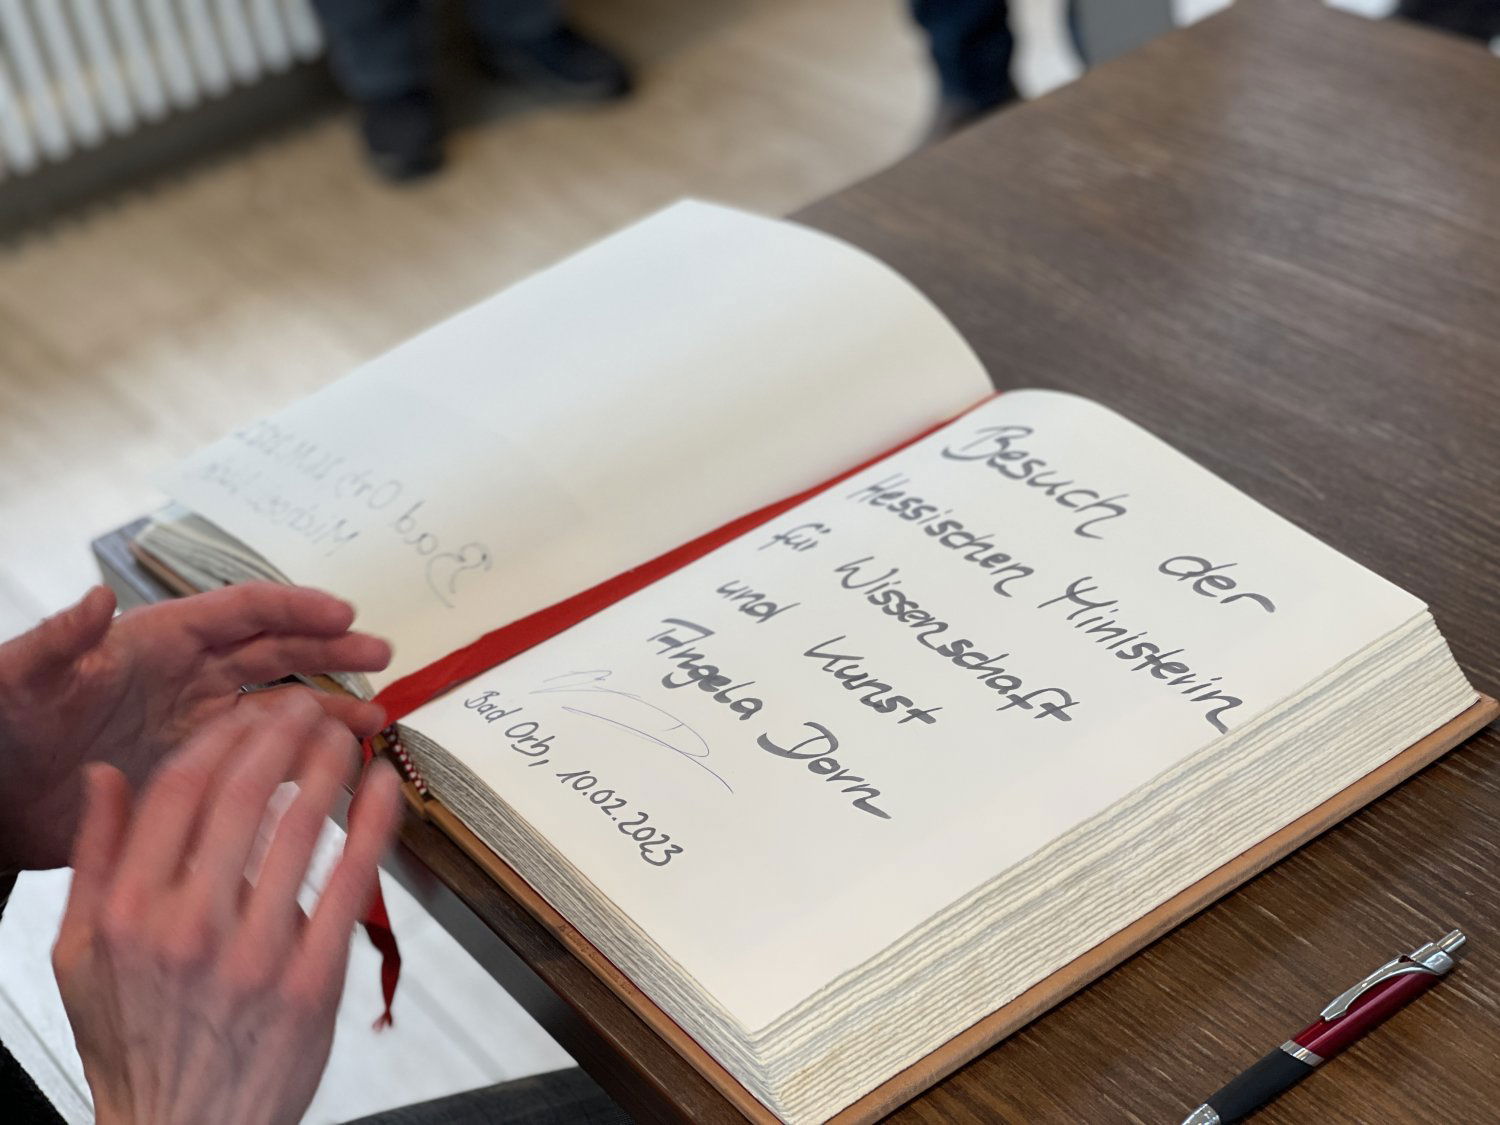 Besuch der
Hessischen Ministerin
für Wissenschaft
und Kunst
Angela Dorn
Bad Orb, 10.02.2023
Bad Orb